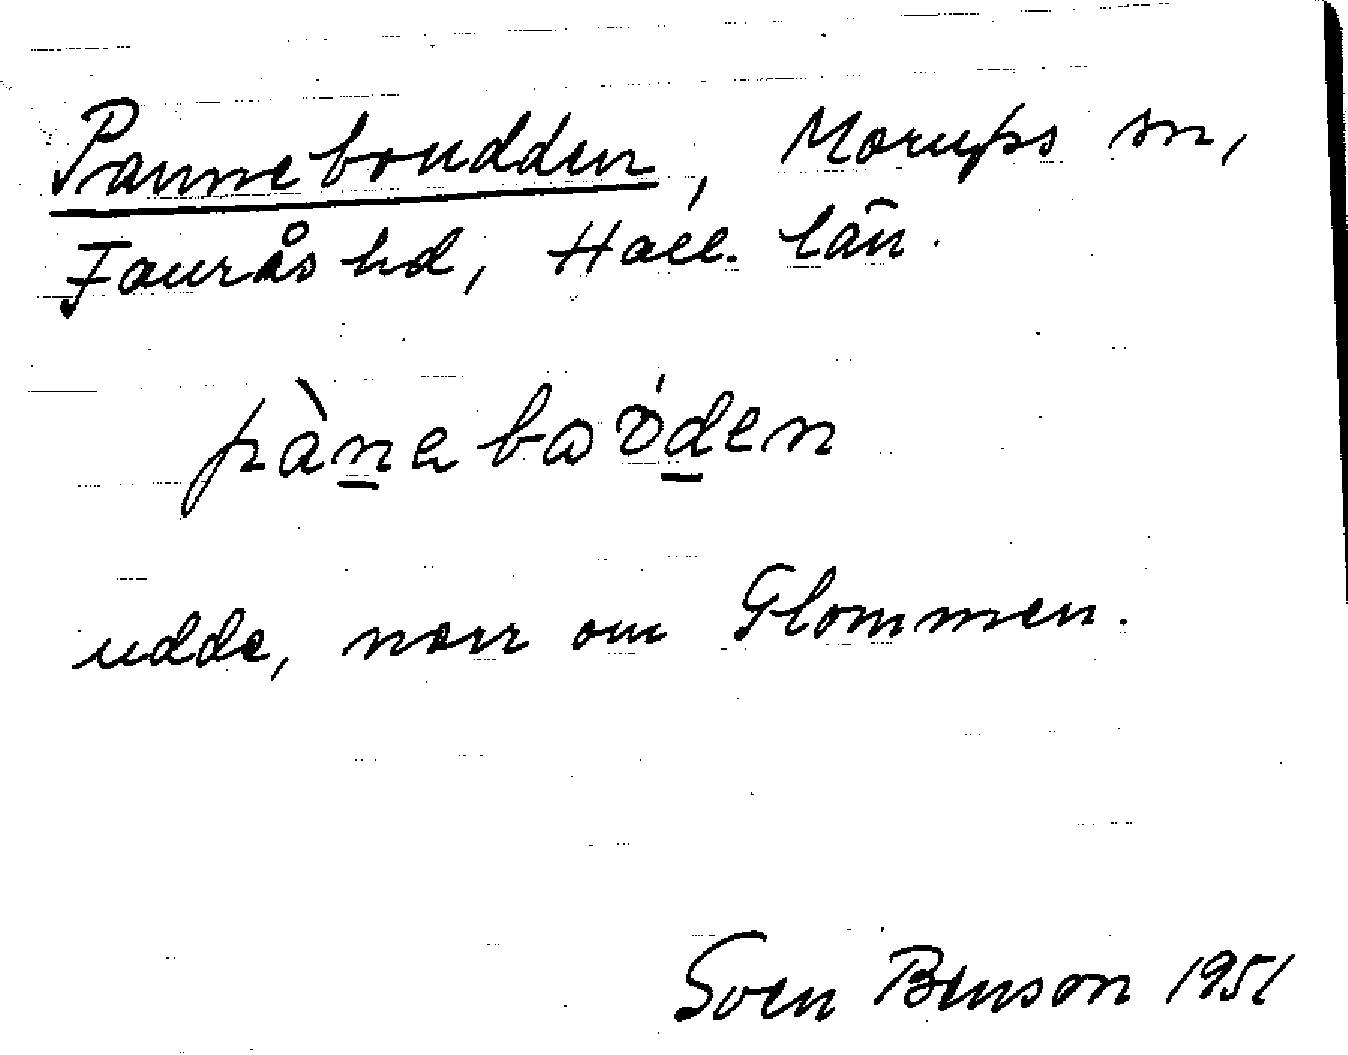 Panneboudden, Morups sn,
Faurås hd, Hall. län.
udde, norr om Glommen.
Sven Benson 1951